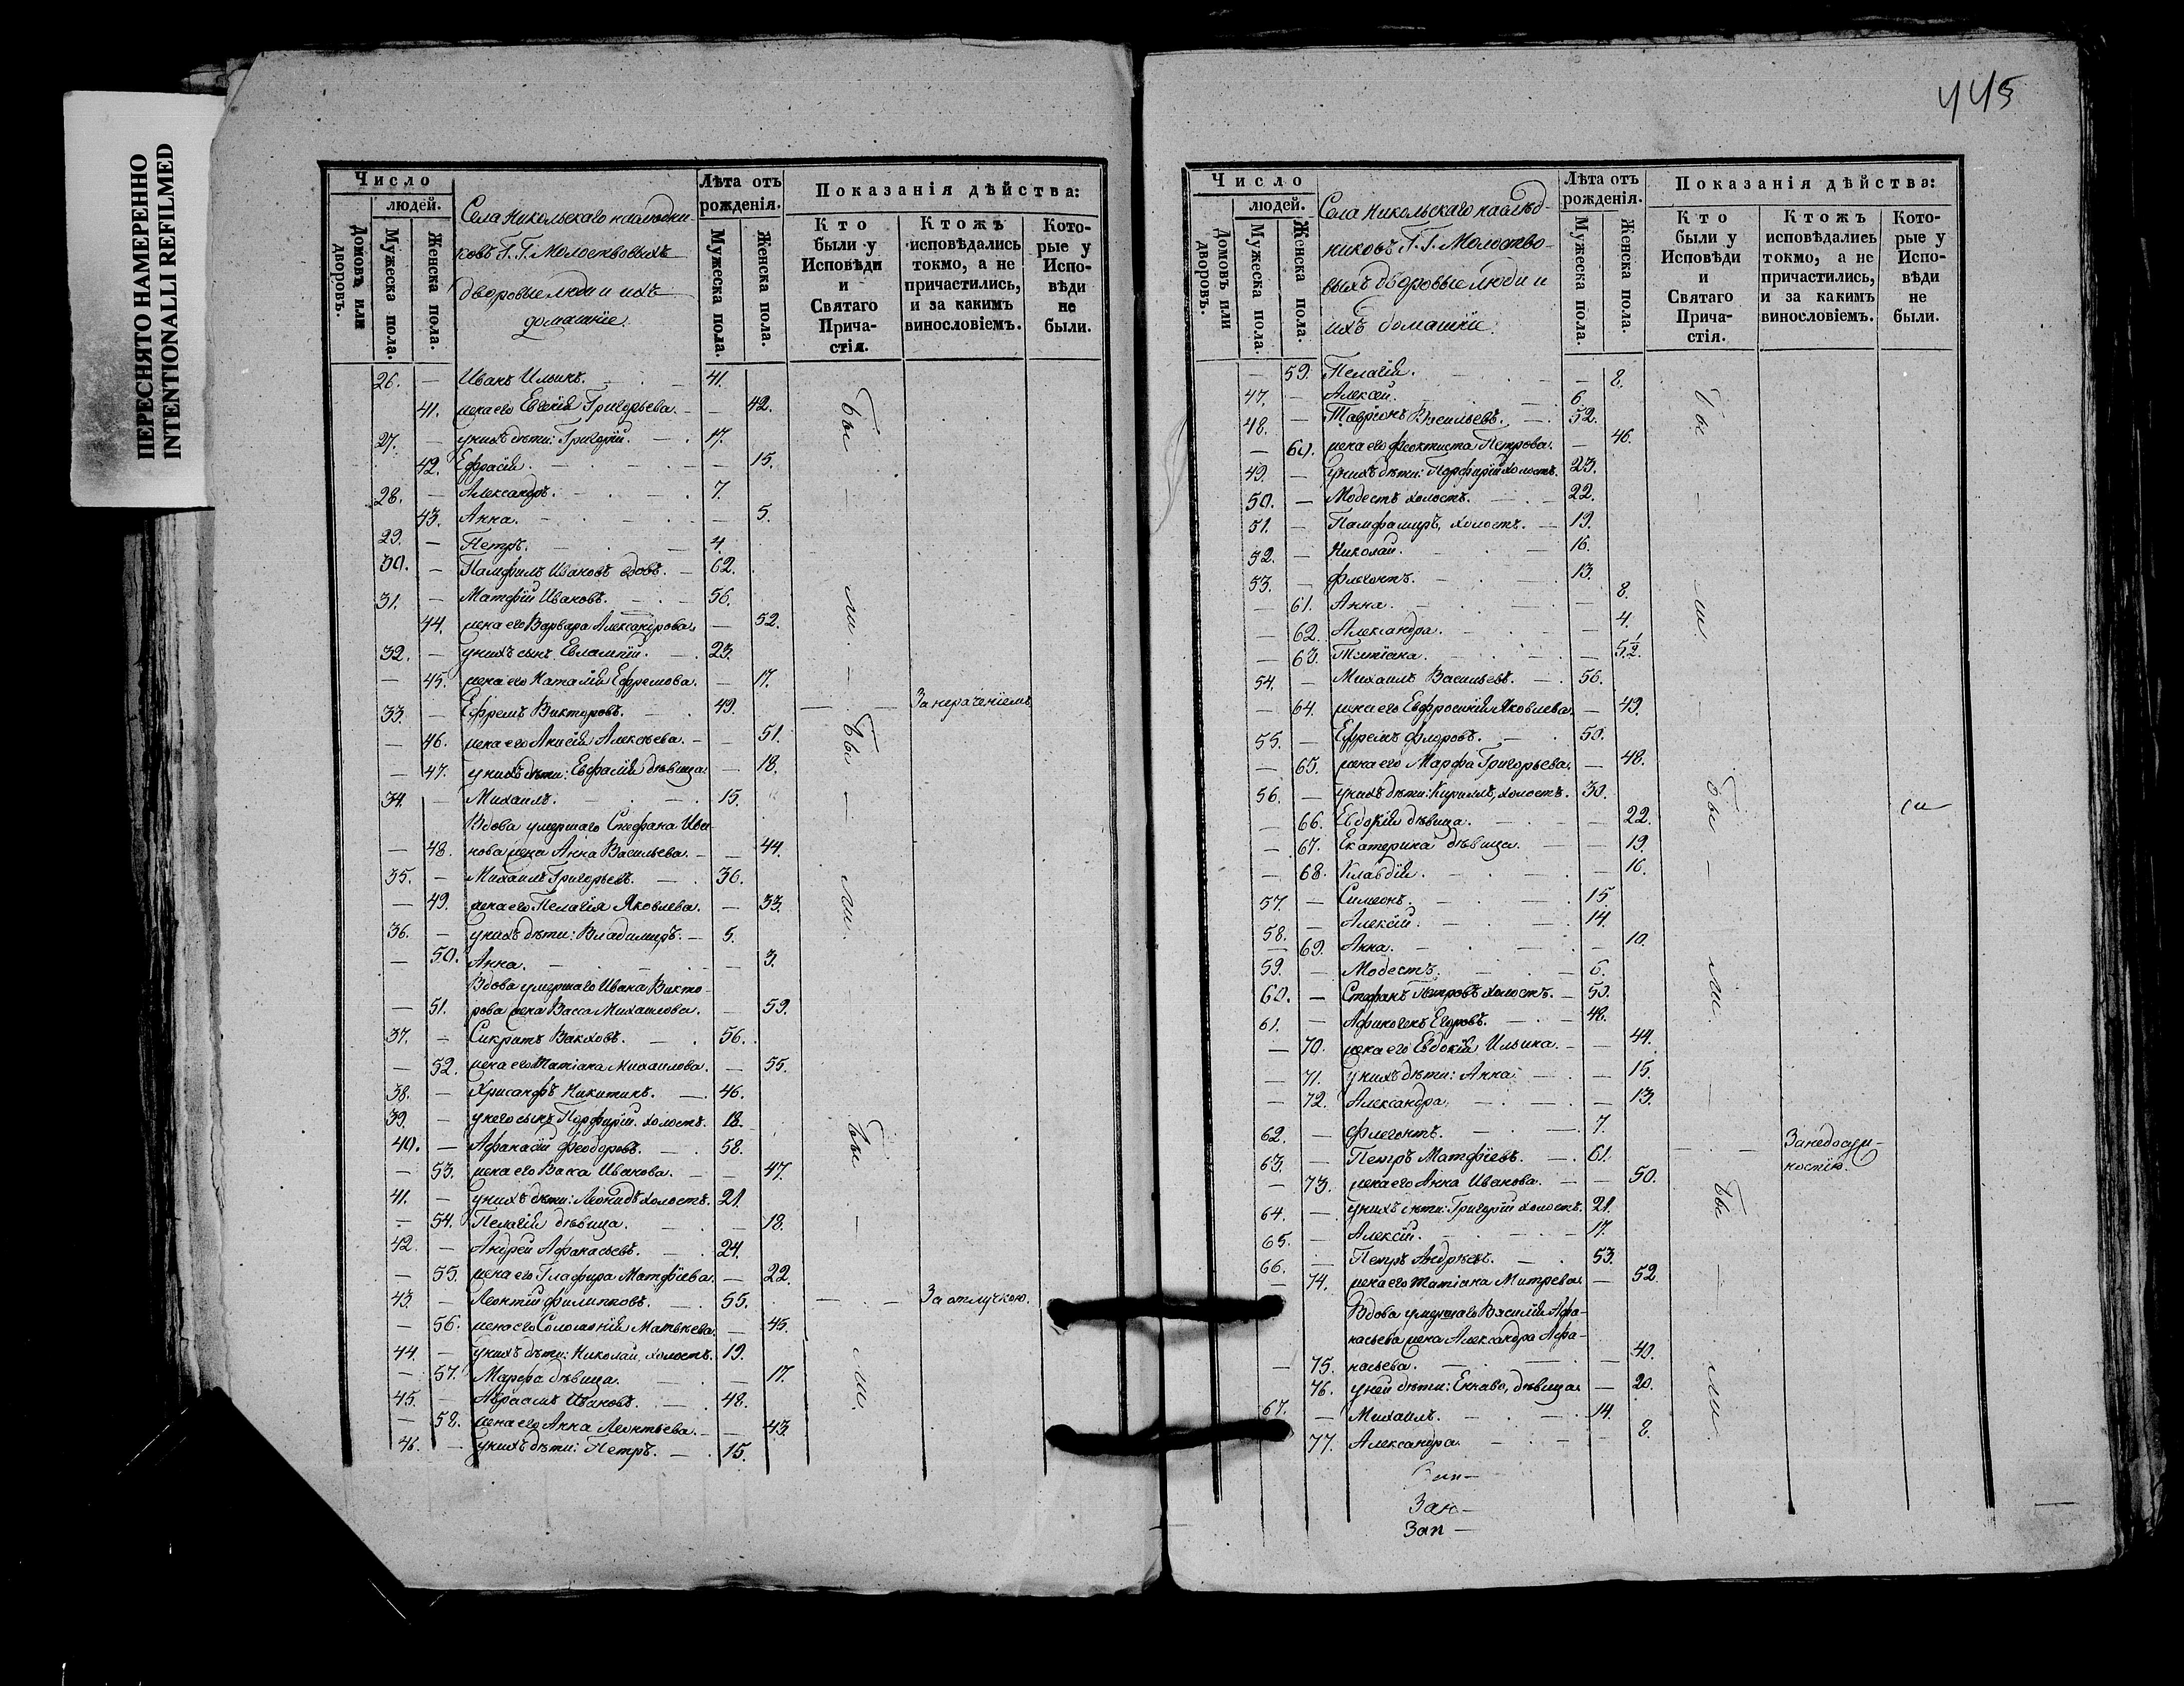 ПЕРЕСНЯТО НАМЕРЕННО
INTENTIONALLI REFILMED
Число
людей.
Домовъ или дворовъ.
Мужеска пола.
Женска пола.
Села Никольскаго наследни-
ковъ Г.Г. Молоствовыхъ
дворовые люди и ихъ
домашніе.
Лѣта отъ рожденія.
Мужеска пола.
Женска пола.
Показанія дѣйства:
Кто были у Исповѣди и Святаго Прича-стія.
Ктожъ исповѣдались токмо, а не причастились, и за какимъ винословіемъ.
Кото-рые у Испо-вѣди не были.
26. — Иванъ Ильинъ. — 41.
41. жена его Евгенія Григорьева. — 42.
27. — у нихъ дѣти: Григорій. — 17.
42. Ефрасія. — 15.
28. — Александръ. — 7.
43. Анна. — 5.
29. — Петръ. — 4.
30. — Памфилъ Ивановъ вдовъ. — 62.
31. — Матфій Ивановъ. — 56.
44. жена его Варвара Александрова. — 52.
32. — у нихъ сынъ Евлампій. — 23.
— 45. жена его Наталія Ефремова. — 17.
33. — Ефремъ Викторовъ. — 49. — За нераченіемъ
— 46. жена его Анисія Алексѣева. — 51.
— 47. у нихъ дѣти: Евфалія дѣвица. — 18.
34. — Михаилъ. — 15.
Вдова умершаго Стефана Ива-
— 48. нова жена Анна Васильева. — 44.
35. — Михаилъ Григорьевъ. — 36.
— 49. жена его Пелагія Яковлева. — 33.
36. — у нихъ дѣти: Владимиръ. — 5.
— 50. Анна. — 3.
Вдова умершаго Ивана Викто-
— 51. рова жена Васса Михаилова. — 59.
37. — Сикратъ Вакховъ. — 56.
— 52. жена его Татіана Михаилова. — 55.
38. — Хрисанфъ Никитинъ. — 46.
39. — у него сынъ Порфирій холостъ. 18.
40. — Афанасій Феодоровъ. — 58.
— 53. жена его Васса Иванова. — 47.
41. — у нихъ дѣти: Леонидъ холостъ. 21.
— 54. Пелагія дѣвица. — 18.
42. — Андрей Афанасьевъ. — 24.
— 55. жена его Глафира Матфіева. — 22.
43. — Леонтій Филипповъ. — 55. — За отлучкою.
— 56. жена его Соломонія Матвѣева. — 45.
44. — у нихъ дѣти: Николай, холостъ. 19.
— 57. Марфа дѣвица. — 17.
45. — Авраамъ Ивановъ. — 48.
— 58. жена его Анна Леонтьева. — 43.
46. — у нихъ дѣти: Петръ. — 15.
Бы — ли. — Бы — ли. Бы. — ли.
445
Число
людей.
Домовъ или дворовъ.
Мужеска пола.
Женска пола.
Села Никольскаго наслѣд-
никовъ Г.Г. Молоство-
выхъ дворовые люди и
ихъ домашніе.
Лѣта отъ рожденія.
Мужеска пола.
Женска пола.
Показанія дѣйства:
Кто были у Исповѣди и Святаго Прича-стія.
Ктожъ исповѣдались токмо, а не причастились, и за какимъ винословіемъ.
Кото-рые у Испо-вѣди не были.
— 59. Пелагія. — 8.
47. — Алексѣй. — 6.
48. — Таврионъ Васильевъ. — 52.
— 60. жена его Феоктиста Петрова. — 46.
49. — у нихъ дѣти: Порфирій холостъ. 23.
50. — Модестъ холостъ. — 22.
51. — Памфамиръ, холостъ. — 19.
52. — Николай. — 16.
53. — Флегонтъ. — 13.
— 61. Анна. — 8.
— 62. Александра. — 4.
— 63. Татіана. — 5½.
54. — Михаилъ Васильевъ. — 56.
— 64. жена его Евфросинія Яковлева. — 49.
55. — Ефремъ Флоровъ. — 50.
— 65. жена его Марфа Григорьева. — 48.
56. — у нихъ дѣти: Кириллъ, холостъ. 30.
— 66. Евдокія дѣвица. — 22.
— 67. Екатерина дѣвица. — 19.
— 68. Клавдія. — 16.
57. — Симеонъ. — 15.
58. — Алексій. — 14.
— 69. Анна. — 10.
59. — Модестъ. — 6.
60. — Стефанъ Петровъ холостъ. — 50.
61. — Афиногенъ Егоровъ. — 48.
— 70. жена его Евдокія Ильина. — 44.
— 71. у нихъ дѣти: Анна — 15.
— 72. Александра. — 13.
62. — Флегонтъ. — 7.
63. — Петръ Матфіевъ. — 61. — За недосуж-
ностію.
— 73. жена его Анна Иванова. — 50.
64. — у нихъ дѣти: Григорій холостъ. 21.
65. — Алексій. — 17.
66. — Петръ Андреевъ. — 53.
— 74. жена его Татіана Митрева. — 52.
Вдова умершаго Василія Афа-
насьева жена Александра Афа-
— 75. насьева. — 40.
76. у ней дѣти: Еннафо, дѣвица. — 20.
67. — Михаилъ. — 14.
77. Александра. — 8.
Бы — ли. — бы — ли. — Бы — ли.
Зап —
Зап —